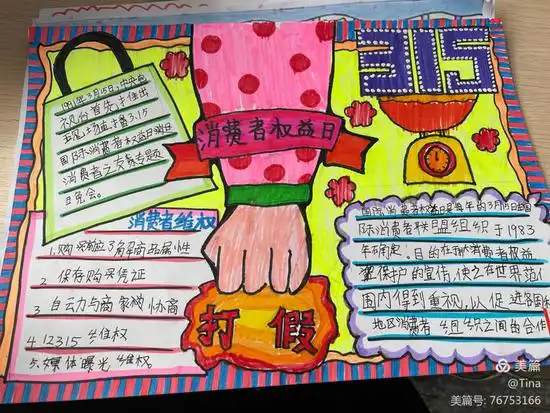 315
消费者权益日
1991年3月15日,中央电
视台首先推出
3.15
国际消费者权益日
消费者之友专题
晚会。
消费者维权
1.购买前应了解商品属性
2 保存购买凭证
3 自云力与商家被协商
4 12315 维权
5.媒体曝光维权。
打假
国际消费者权益日是每年的3月15日由国
际消费者联盟组织于1983
年确定,目的在
保护的宣传,使之在世界范
围内得到重视,以促进各国和
地区消费者组织之间的合作
美篇
@Tina
美篇号: 76753166